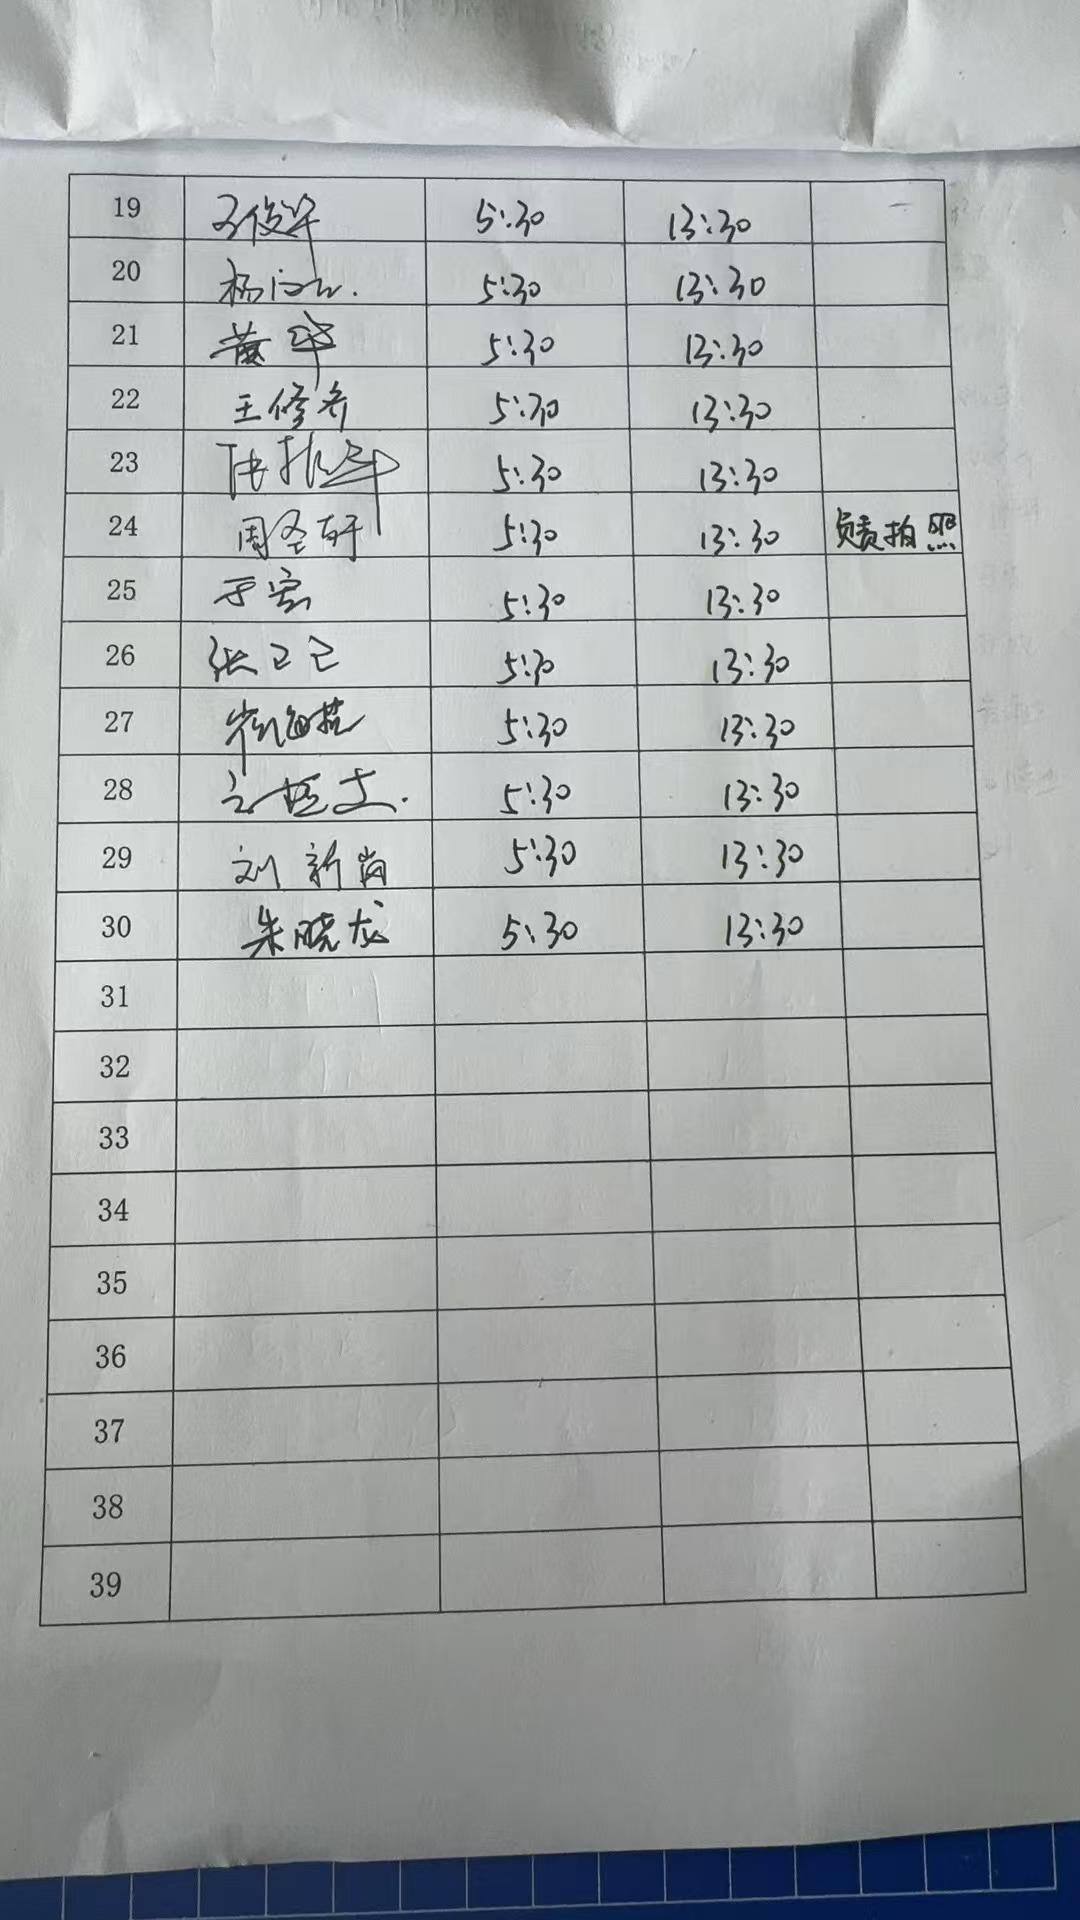 19 王俊华 5:30 13:30
20 杨 5:30 13:30
21 黄华 5:30 13:30
22 王修齐 5:30 13:30
23 5:30 13:30
24 周圣轩 5:30 13:30 负责拍照
25 于宏 5:30 13:30
26 张卫己 5:30 13:30
27 崔海燕 5:30 13:30
28 5:30 13:30
29 刘新岗 5:30 13:30
30 朱晓龙 5:30 13:30
31
32
33
34
35
36
37
38
39